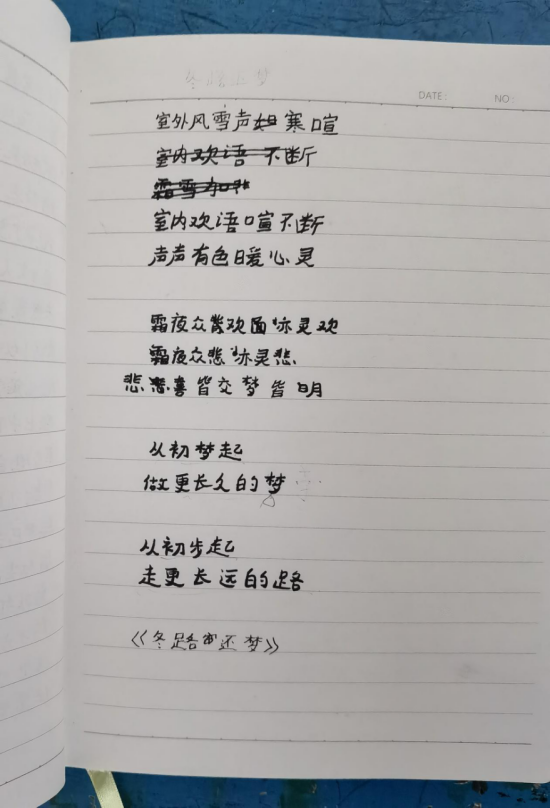 DATE: NO:
室外风雪声如寒喧
室内欢语不断
霜雪加
室内欢语喧不断
声声有色暖心灵
霜夜众欢面亦灵欢
霜夜众悲亦灵悲
悲喜皆交梦皆明
从初梦起
做更长久的梦
从初步起
走更长远的路
《冬路还梦》